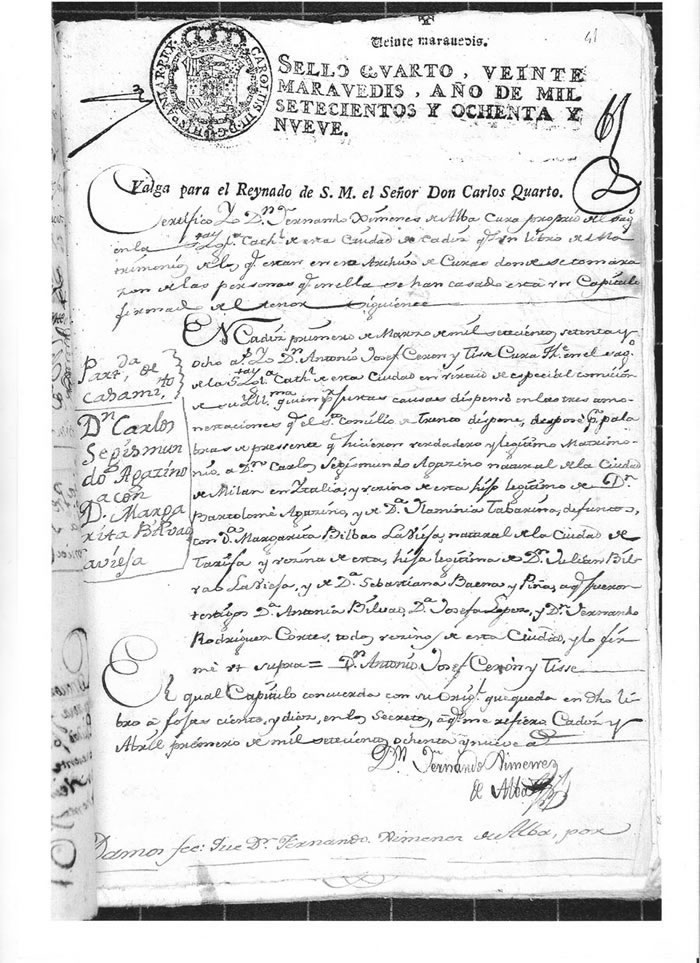 Veinte maravedis.
41
SELLO QVARTO, VEINTE
MARAVEDIS, AÑO DE MIL
SETECIENTOS Y OCHENTA Y
NVEVE.
CAROLUS III. D. G. HISP. ET IND. REX
Valga para el Reynado de S. M. el Señor Don Carlos Quarto.
Certifico Yo Dn. Fernando Ximenes de Alba Cura proprio del Sagº
en la Sta Ygª. Cathl. de esta Ciudad de Cadiz qe. en un libro de Ma
trimonios de los qe. estan en este Archivo de Curas donde se toma ra
zon de las personas qe. en ella se han casado está un Capitulo
firmado del tenor siguiente
En Cadiz primero de Marzo de mil setecientos setenta y
ocho as. Yo Dn. Antonio Josef Ceron y Tisse Cura Thte. en el Sagº.
de la Sta Ygª. Cathl. de esta Ciudad en virtud de especial comision
de su Illma. quien pr. justas causas dispensó en las tres amo
nestaciones qe. el Sto. Concilio de Trento dispone, desposé pr. pala
bras de presente qe. hicieron verdadero y legitimo Matrimo
nio, a Dn. Carlos Segismundo Agazino natural de la Ciudad
de Milan en Ytalia, y vezino de esta hijo legitimo de Dn.
Bartolomé Agazino, y de Dª. Flaminia Tabarina, defuntos,
con Dª. Margarita Bilbao La Viesa, natural de la Ciudad de
Tarifa y vezina de esta, hija legitima de Dn. Julian Bil
bao La Viesa, y de Dª. Sebastiana Baena y Piña, a qe. fueron
testigos Dª. Antonia Bilvao, Dª. Josefa Lopez, y Dn. Fernando
Rodriguez Cortes, todos vezinos de esta Ciudad, y lo fir
mé ut supra = Dn. Antonio Josef Ceron y Tisse
El qual Capitulo concuerda con su Origl. que queda en dho li
bro á fojas ciento, y diez, en los Secretos, a qe. me refiero Cadiz y
Abril primero de mil setecientos ochenta y nueve as
Dn. Fernando Ximenez
de Alba
Partda. de
Casamto.
Dn. Carlos
Segismun
do Agazino
con
Dª. Marga
rita Bilvao
laviesa
Damos fee: Que Dn. Fernando Ximenez de Alba, por